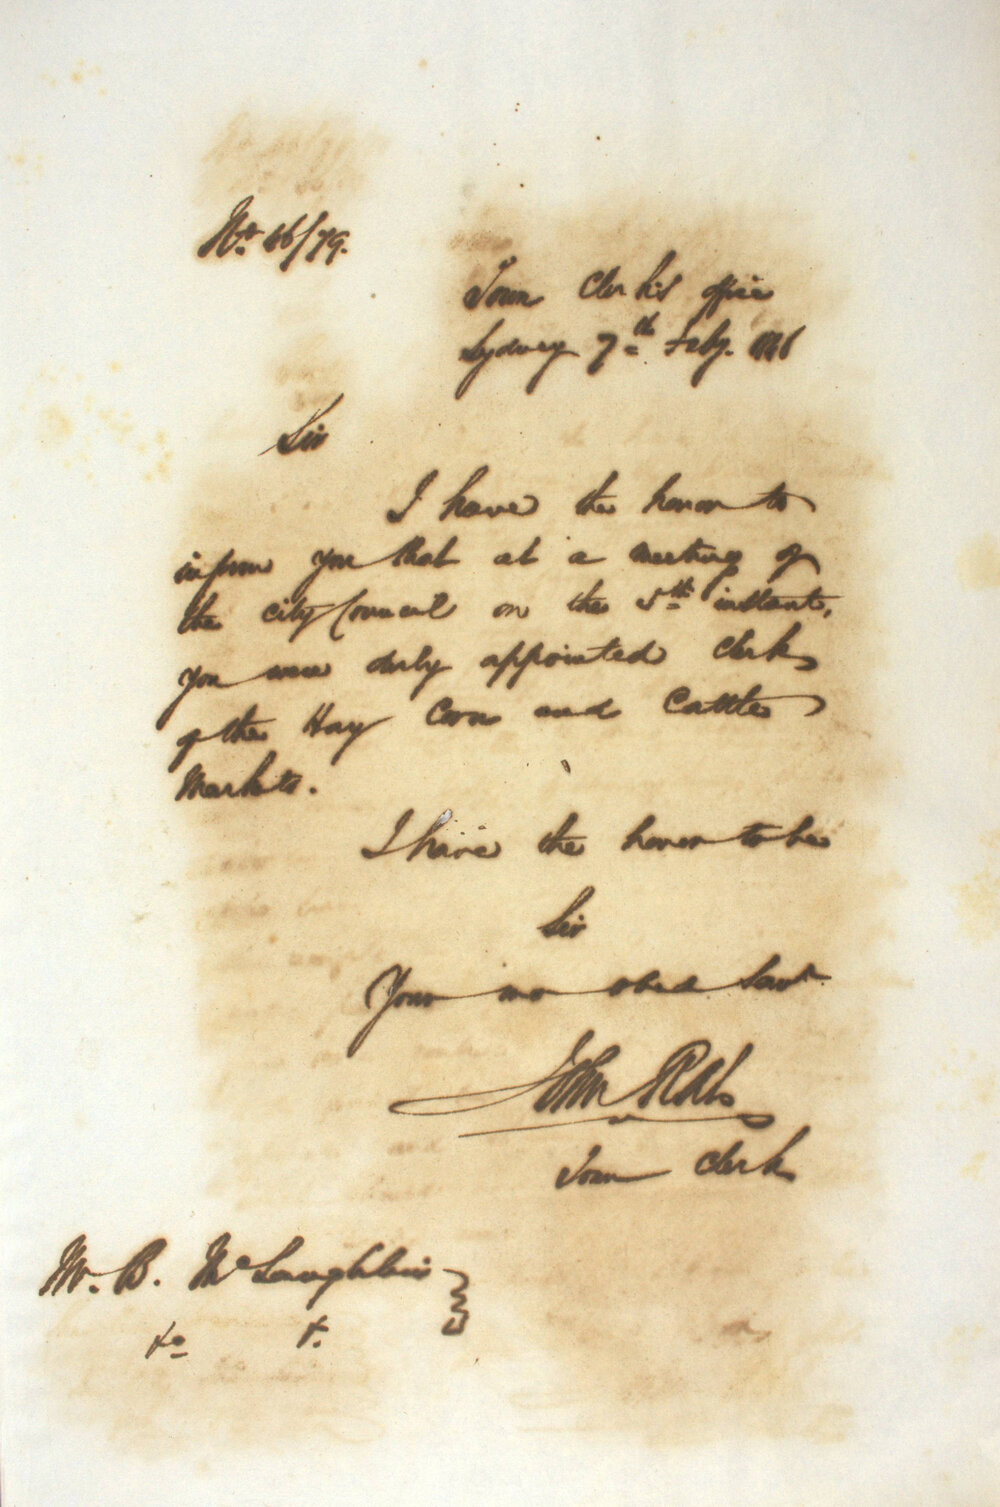 No. 46/79.
Town Clerk's Office
Sydney 7th Feby. 1846
Sir
I have the honor to
inform you that at a meeting of
the City Council on the 5th instant,
you were duly appointed Clerk
of the Hay Corn and Cattle
Markets.
I have the honor to be
Sir
Your mo obed Servt
John Rae
Town Clerk
Mr. B. McLaughlin